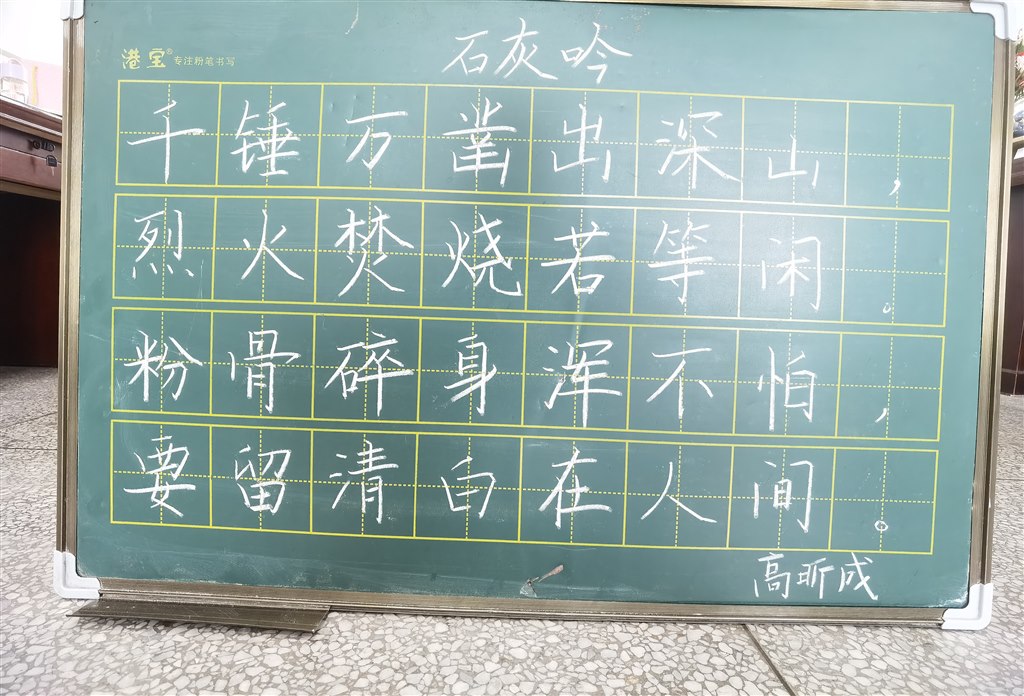 港宝® 专注粉笔书写
石灰吟
千锤万凿出深山，
烈火焚烧若等闲。
粉骨碎身浑不怕，
要留清白在人间。
高昕成